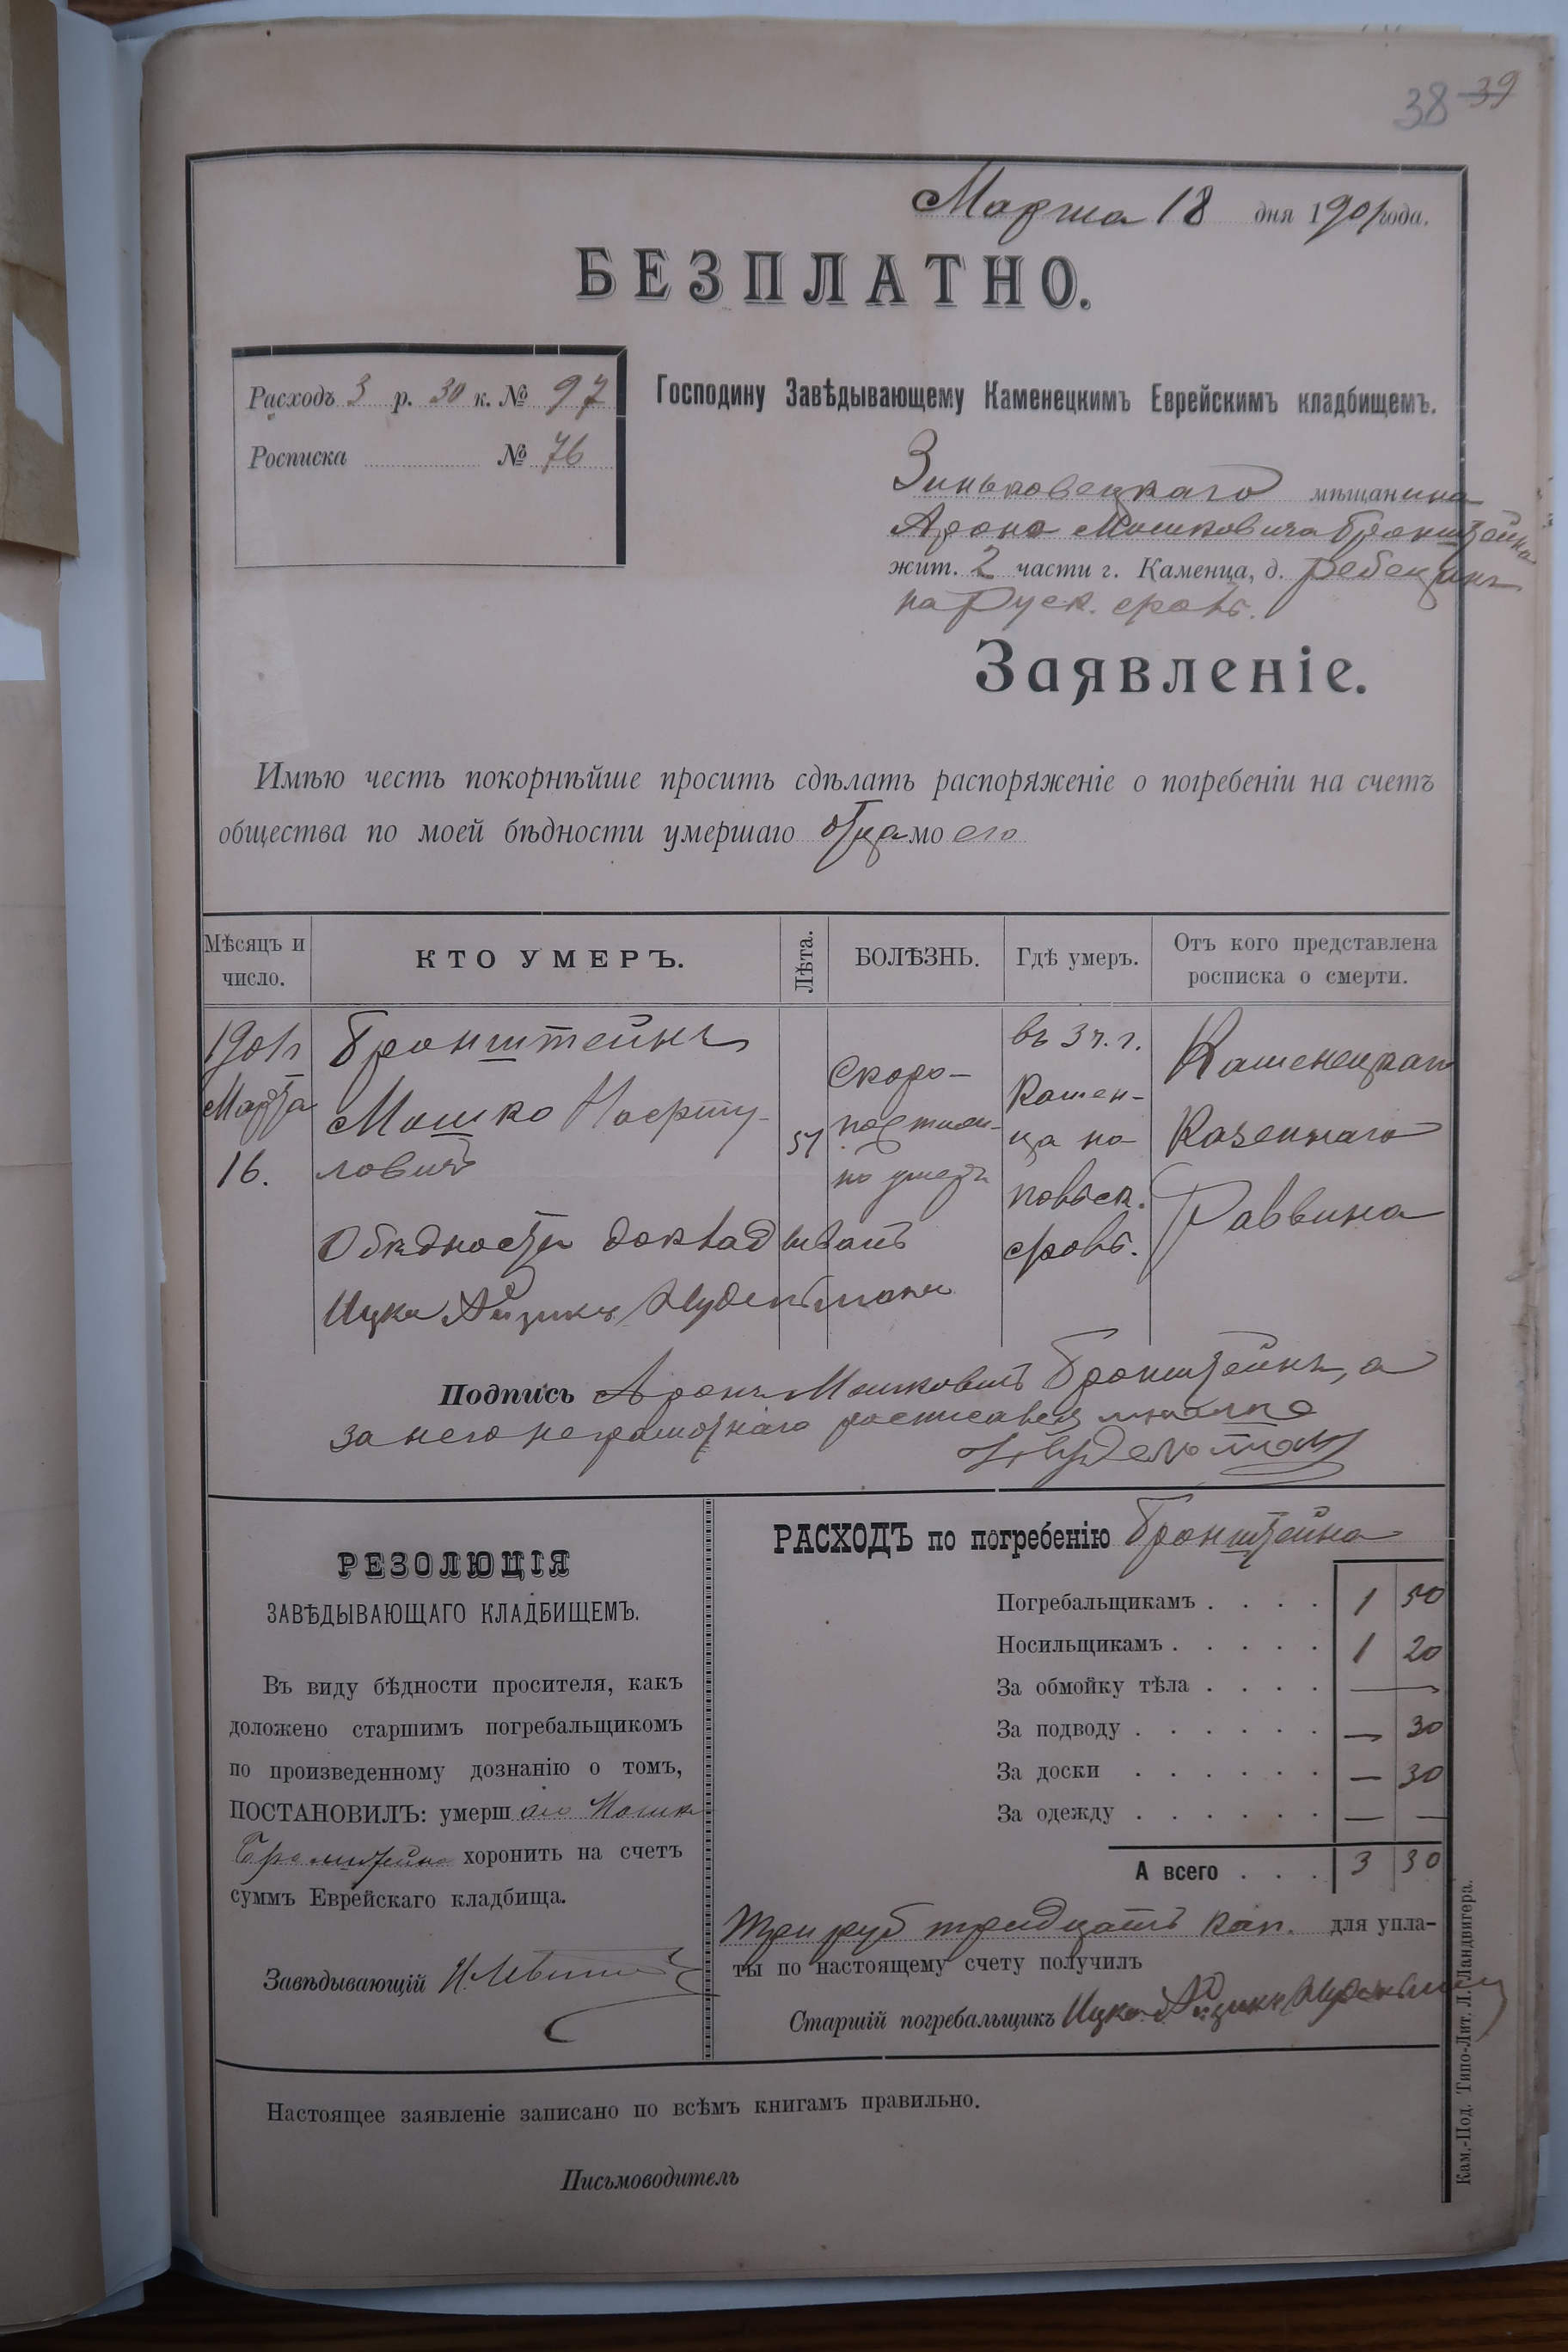 38 39
Марта 18 дня 1901 года.
БЕЗПЛАТНО.
Расходъ 3 р. 30 к. № 97
Росписка № 76
Господину Завѣдывающему Каменецкимъ Еврейскимъ кладбищемъ.
Зиньковецкаго мѣщанина
Арона Мошковича Бронштейна
жит. 2 части г. Каменца, д.
на Руск. фров.
Заявленіе.
Имѣю честь покорнѣйше просить сдѣлать распоряженіе о погребеніи на счетъ
общества по моей бѣдности умершаго отца моего
Мѣсяцъ и число.
КТО УМЕРЪ.
Лѣта.
БОЛѢЗНЬ.
Гдѣ умеръ.
Отъ кого представлена росписка о смерти.
1901 г.
Марта
16.
Бронштейнъ
Мошко
ловичъ
О бѣдности докладываетъ
Ицко Айзикъ Нудельманъ
51
Скоро-
постиж-
но умеръ
въ 3 ч. г.
Камен-
ца на
фров.
Каменецкаго
Казеннаго
Раввина
Подпись Аронъ Мошковичъ Бронштейнъ, а
за него неграмотнаго росписался
Нудельман
РЕЗОЛЮЦІЯ
ЗАВѢДЫВАЮЩАГО КЛАДБИЩЕМЪ.
Въ виду бѣдности просителя, какъ
доложено старшимъ погребальщикомъ
по произведенному дознанію о томъ,
ПОСТАНОВИЛЪ: умершаго Мошка
Бронштейна хоронить на счетъ
суммъ Еврейскаго кладбища.
Завѣдывающій
РАСХОДЪ по погребенію Бронштейна
Погребальщикамъ . . . . 1 50
Носильщикамъ . . . . . 1 20
За обмойку тѣла . . . . —
За подводу . . . . . . — 30
За доски . . . . . . — 30
За одежду . . . . . . — —
А всего . . . 3 30
Три руб тридцать коп. для упла-
ты по настоящему счету получилъ
Старшій погребальщикъ Ицко Айзикъ Нудельман
Настоящее заявленіе записано по всѣмъ книгамъ правильно.
Письмоводитель
Кам.-Под. Типо-Лит. Л. Ландвигера.